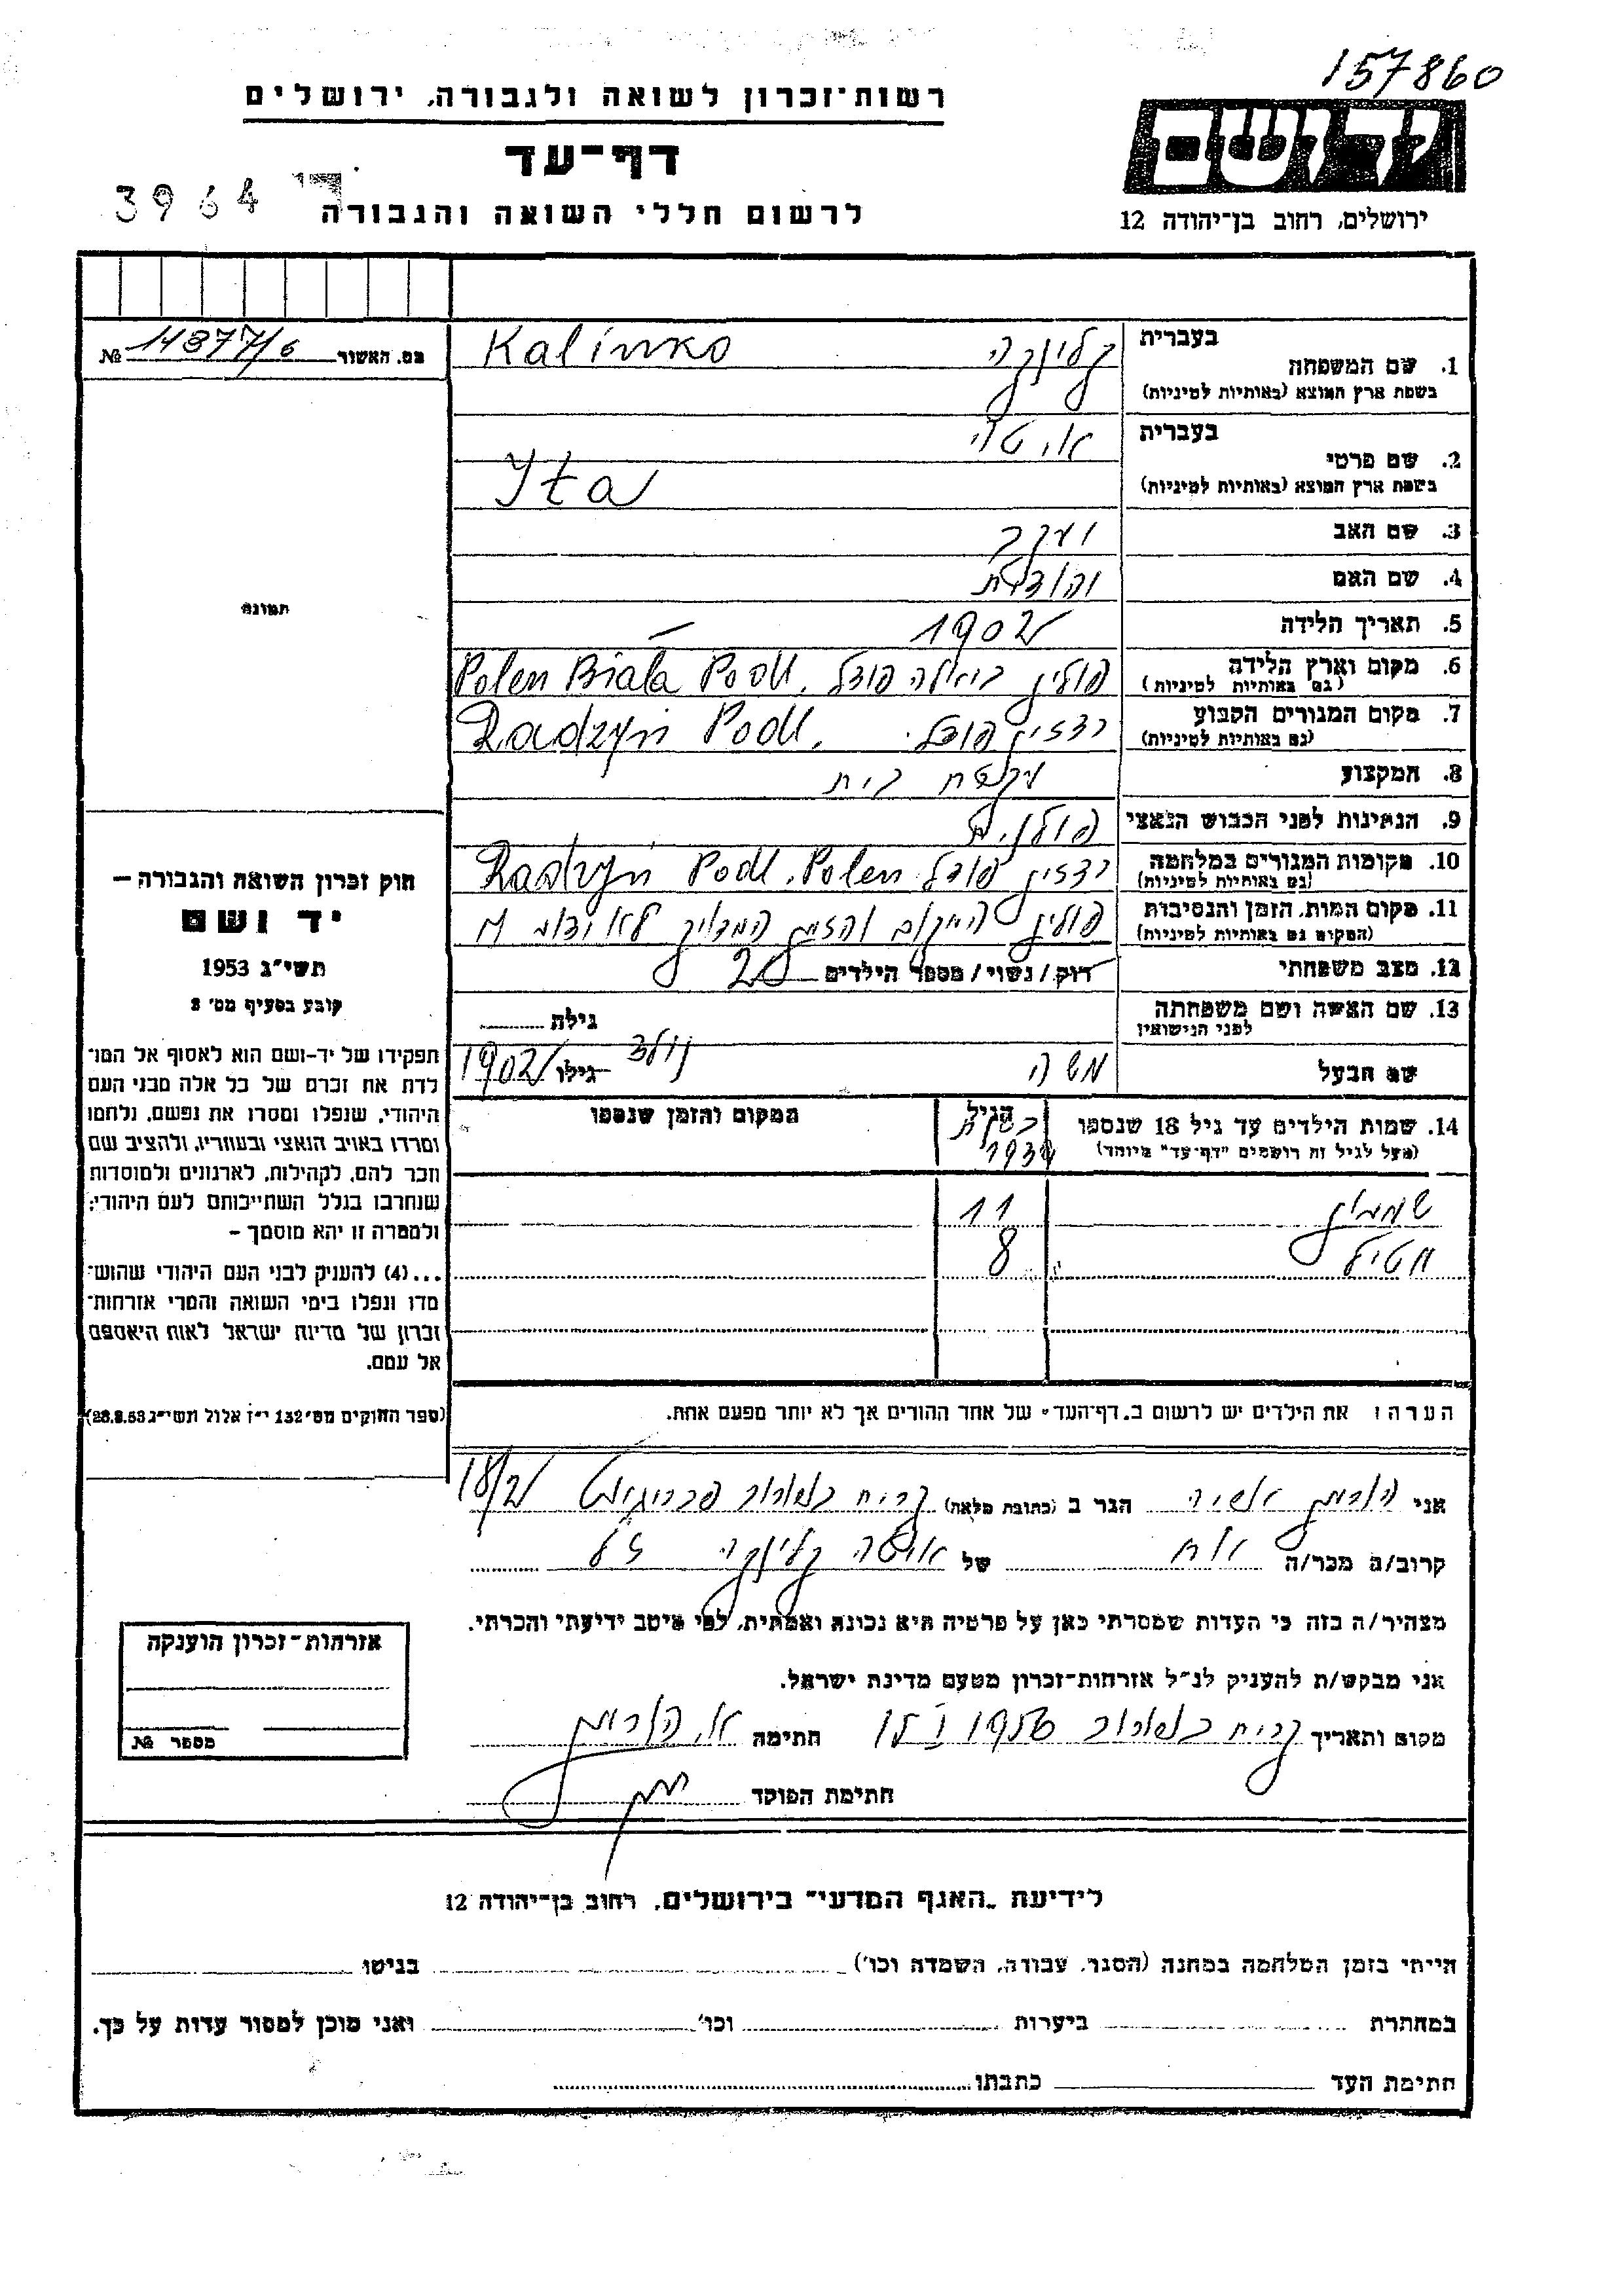 157860
רשות־זכרון לשואה ולגבורה, ירושלים
דף־עד
לרשום חללי השואה והגבורה
3964
יד ושם
ירושלים, רחוב בן־יהודה 12
מס. האשור 14377/6 №
1. שם המשפחה
בעברית קלינקה
בשפת ארץ המוצא (באותיות לטיניות) Kalinko
2. שם פרטי
בעברית איטה
בשפת ארץ המוצא (באותיות לטיניות) Yta
3. שם האב יעקב
4. שם האם יהודית
5. תאריך הלידה 1902
6. מקום וארץ הלידה פולין ביאלה פודל. Polen Biala Podl.
(גם באותיות לטיניות)
7. מקום המגורים הקבוע רדזין פודל. Radzyń Podl.
(גם באותיות לטיניות)
8. המקצוע עקרת בית
9. הנתינות לפני הכבוש הנאצי פולנית
10. מקומות המגורים במלחמה רדזין פודל. Radzyń Podl. Polen
(גם באותיות לטיניות)
11. מקום המות, הזמן והנסיבות פולין המקום והזמן המדויק לא ידוע
(המקום גם באותיות לטיניות)
12. מצב משפחתי רוק/נשוי/מספר הילדים 2
13. שם האשה ושם משפחתה
לפני הנישואין
גילה
שם הבעל משה גילו נולד 1902
14. שמות הילדים עד גיל 18 שנספו
(מעל לגיל זה רושמים "דף־עד" מיוחד)
הגיל
בשנת
1939
המקום והזמן שנספו
שמעון 11
8
הערה: את הילדים יש לרשום ב„דף־העד” של אחד ההורים אך לא יותר מפעם אחת.
תמונה
חוק זכרון השואה והגבורה —
יד ושם
תשי"ג 1953
קובע בסעיף מס' 2
תפקידו של יד־ושם הוא לאסוף אל המו־
לדת את זכרם של כל אלה מבני העם
היהודי, שנפלו ומסרו את נפשם, נלחמו
ומרדו באויב הנאצי ובעוזריו, ולהציב שם
וזכר להם, לקהילות, לארגונים ולמוסדות
שנחרבו בגלל השתייכותם לעם היהודי;
ולמטרה זו יהא מוסמך —
...(4) להעניק לבני העם היהודי שהוש־
מדו ונפלו בימי השואה והמרי אזרחות־
זכרון של מדינת ישראל לאות היאספם
אל עמם.
(ספר החוקים מס' 132 י"ז אלול תשי"ג 28.8.53)
אני הוכמן אשר הגר ב (כתובת מלאה) קרית 18/2
קרוב/ה מכר/ה אח של איטה קלינקה ז"ל
מצהיר/ה בזה כי העדות שמסרתי כאן על פרטיה היא נכונה ואמתית, לפי מיטב ידיעתי והכרתי.
אני מבקש/ת להעניק לנ"ל אזרחות־זכרון מטעם מדינת ישראל.
מקום ותאריך קרית 1956 חתימה א. הוכמן
חתימת הפוקד
אזרחות־זכרון הוענקה
מספר №
לידיעת „האגף המדעי” בירושלים, רחוב בן־יהודה 12
הייתי בזמן המלחמה במחנה (הסגר, עבודה, השמדה וכו') בגיטו
במחתרת ביערות וכו' ואני מוכן למסור עדות על כך.
חתימת העד כתבתו